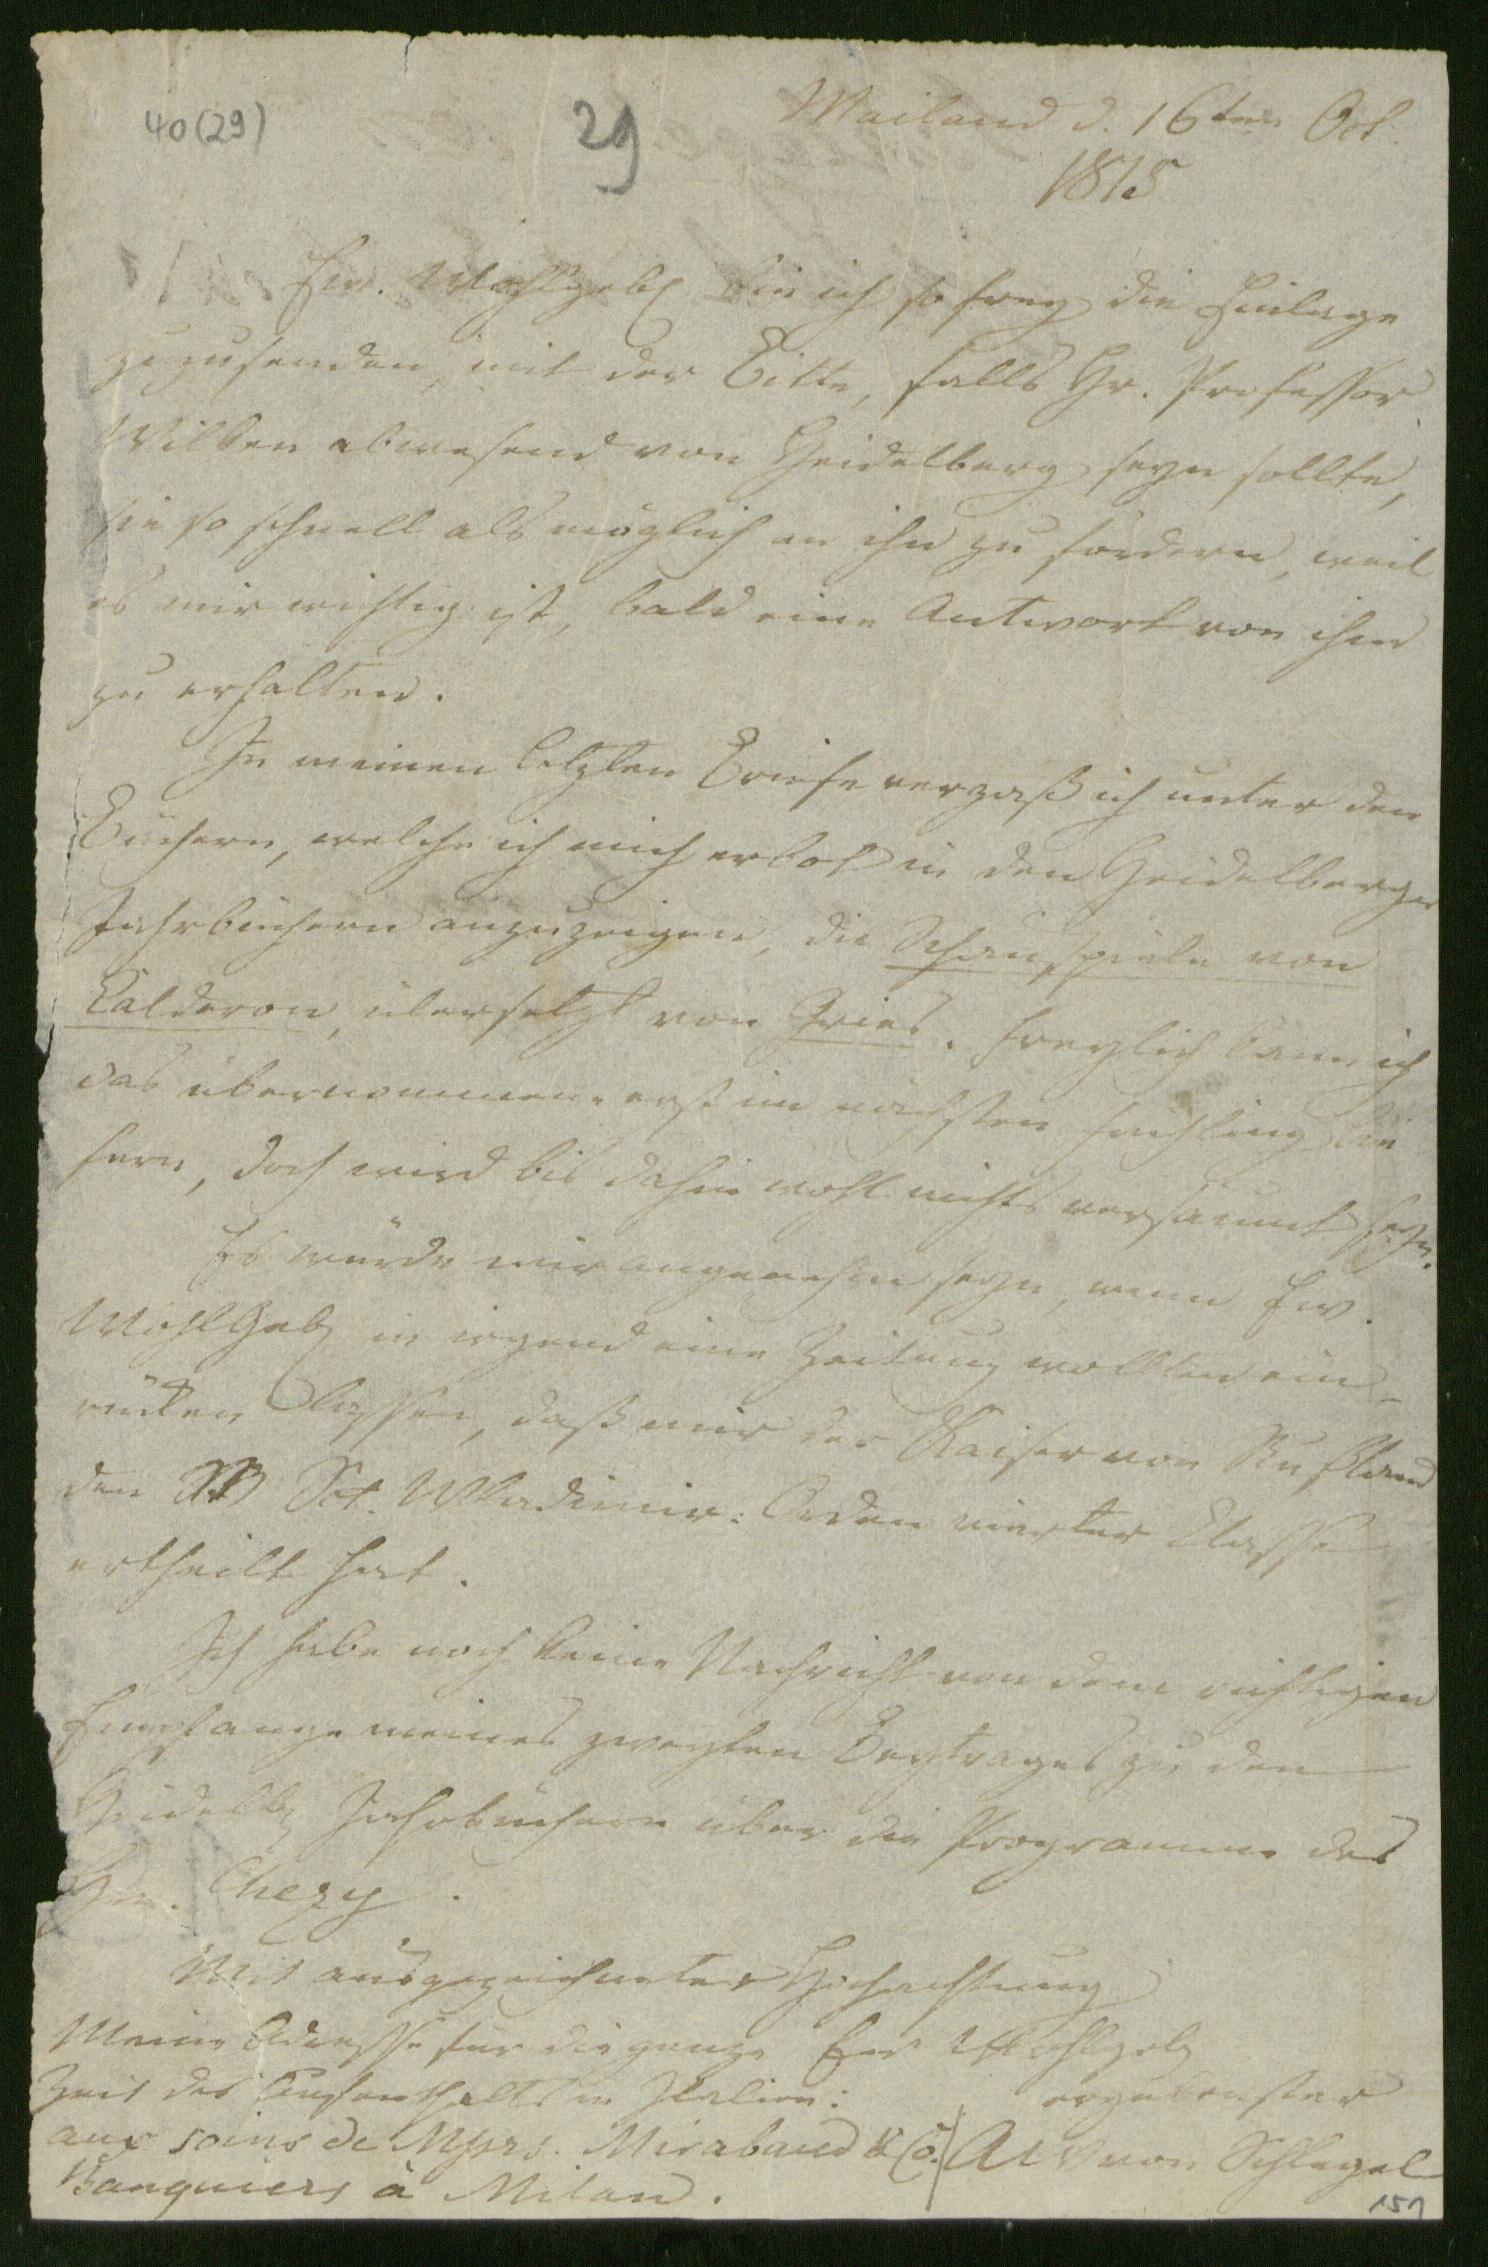 40(29)
29
Mailand d. 16ten Oct.
1815
Ew. Wohlgeb. bin ich so frey die Einlage
zuzusenden, mit der Bitte, falls Hr. Professor
Wilken abwesend von Heidelberg seyn sollte,
sie so schnell als möglich an ihn zu fördern, weil
es mir wichtig ist, bald eine Antwort von ihm
zu erhalten.
In meinem letzten Briefe vergaß ich unter den
Büchern, welche ich mich erbot in den Heidelberger
Jahrbüchern anzuzeigen, die Schauspiele von
Calderon, übersetzt von Gries. Freylich kann ich
das übernommene erst im nächsten Frühling lie
fern, doch wird bis dahin wohl nichts versäumt seyn.
Es würde mir angenehm seyn, wenn Ew.
WohlGeb. in irgend eine Zeitung wollten ein-
rücken lassen, daß mir der Kaiser von Rußland
den Sct. Wladimir-Orden vierter Classe
ertheilt hat.
Ich habe noch keine Nachricht von dem richtigen
Empfange meines zweyten Beytrages zu den
Heidelb. Jahrbüchern über die Programme des
Hrn. Chezy.
Mit ausgezeichneter Hochachtung
Meine Adresse für die ganze
Zeit des Aufenthalts in Italien:
aux soins de Messrs. Mirabaud & Co.
Banquiers à Milan.
Ew Wohlgeb.
ergebenster
AW von Schlegel
151